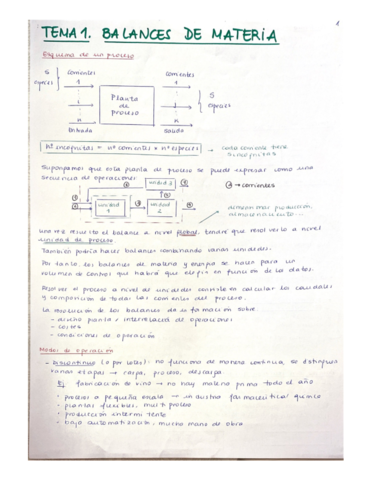 1
TEMA 1. BALANCES DE MATERIA
Esquema de un proceso
S especies
corrientes
1
2
n
Entrada
Planta de proceso
corrientes
1
2
n
Salida
S especies
nº incógnitas = nº corrientes x nº especies → cada corriente tiene S incógnitas
Supongamos que esta planta de proceso se puede expresar como una
secuencia de operaciones:
unidad 1
unidad 2
unidad 3
→ corrientes
almacenamiento...
una vez resuelto el balance a nivel global, tendré que resolverlo a nivel
unidad de proceso.
También podría hacer balances combinando varias unidades.
Por tanto, los balances de materia y energía se hacen para un
volumen de control que habrá que elegir en función de los datos.
Resolver el proceso a nivel de unidades consiste en calcular los caudales
y composición de todas las corrientes del proceso.
La resolución de los balances da información sobre
- diseño planta e interrelación de operaciones
- costes
- condiciones de operación
Modos de operación
- Discontinuo (o por lotes): no funciona de manera continua, se distinguen
varias etapas → carga, proceso, descarga
Ej: fabricación de vino → no hay materia prima todo el año
· procesos a pequeña escala → industria farmacéutica, química
· plantas flexibles, multiproceso
· producción intermitente
· baja automatización, mucha mano de obra